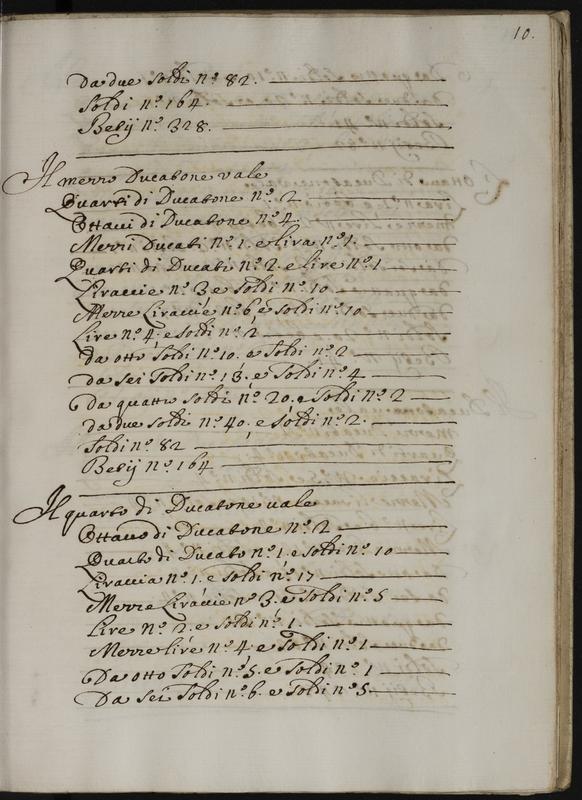 10.
Da due soldi nº 82.
Soldi nº 164.
Besij nº 328.
Il mezzo Ducatone vale
Quarti di Ducatone nº 2
Ottaui di Ducatone nº 4
Mezzi Ducati nº 1. e lira nº 1.
Quarti di Ducati nº 2. e lire nº 1
Liraccie nº 3 e soldi nº 10
Mezze Liraccie nº 6 e soldi nº 10
Lire nº 4. e soldi nº 2
da otto soldi nº 10. e soldi nº 2
da sei soldi nº 13. e soldi nº 4
Da quattro soldi nº 20. e soldi nº 2
da due soldi nº 40. e soldi nº 2.
Soldi nº 82
Besij nº 164
Il quarto di Ducatone vale
Ottauo di Ducatone nº 2
Quarto di Ducato nº 1. e soldi nº 10
Liraccia nº 1. e soldi nº 17
Mezze Liraccie nº 3. e soldi nº 5
Lire nº 2. e soldi nº 1.
Mezze lire nº 4 e soldi nº 1
Da otto soldi nº 5. e soldi nº 1
Da sei soldi nº 6. e soldi nº 5